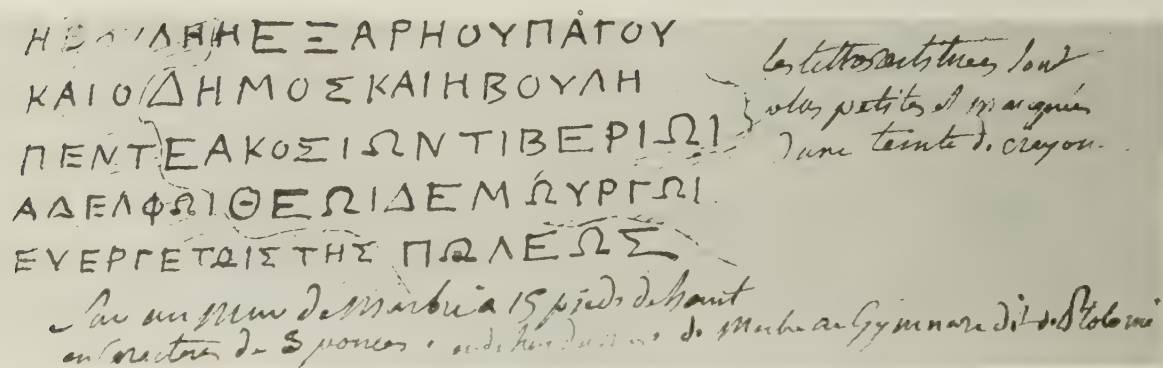 ΕΞ ΑΡΗΟΥ ΠΑΓΟΥ
ΚΑΙ Ο ΔΗΜΟΣ ΚΑΙ Η ΒΟΥΛΗ
ΠΕΝΤΕΑΚΟΣΙΩΝ ΤΙΒΕΡΙΩΙ
ΑΔΕΛΦΩΙ ΘΕΩΙ ΔΕΜΩΥΡΓΩΙ
ΕΥΕΡΓΕΤΩΙΣ ΤΗΣ ΠΩΛΕΩΣ
Les lettres restituées sont
plus petites et marquées
d'une teinte de crayon.
Sur un mur de Marbre à 15 pieds de haut
en caractères de 3 pouces de Marbre au Gymnase dit de Ptolomé